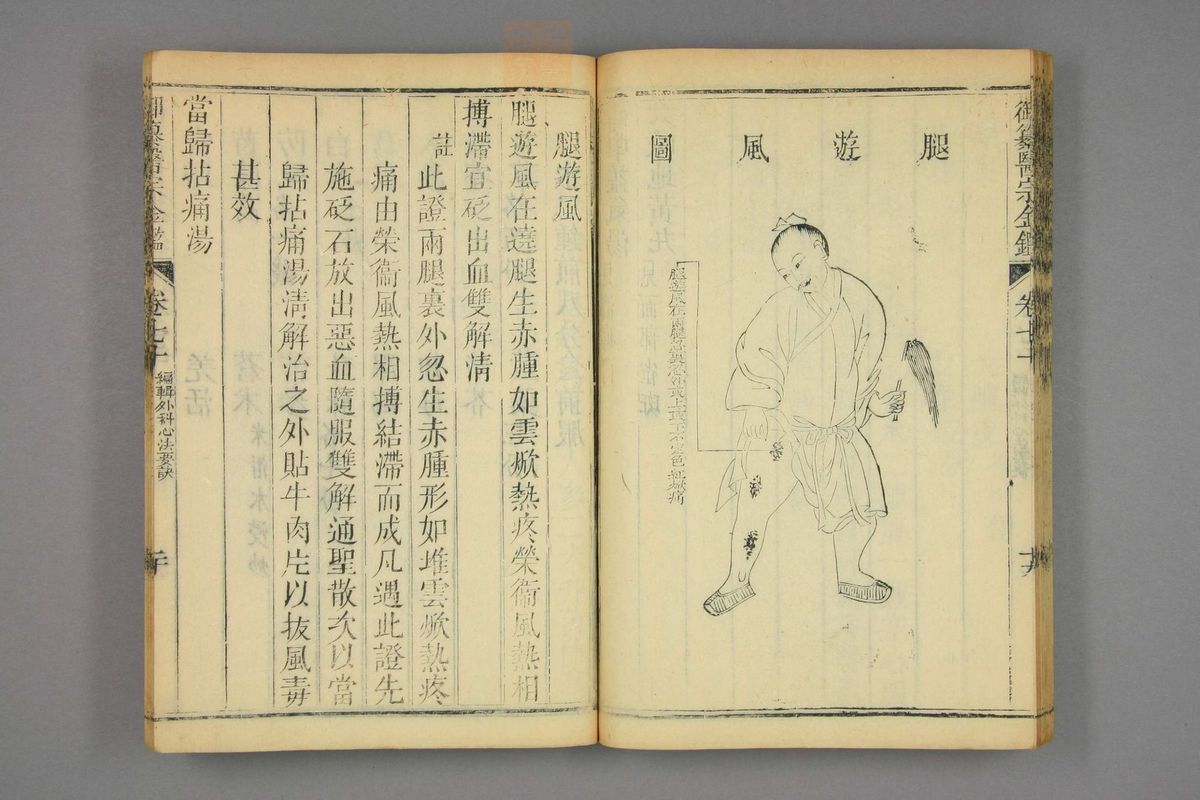 御纂醫宗金鑑 卷七十
腿遊風圖
腿遊風在兩腿忽裏忽外或上或下不定色紅焮痛
腿遊風
腿遊風在遶腿生赤腫如雲焮熱疼榮衞風熱相
搏滯宜砭出血雙解清
註此證兩腿裏外忽生赤腫形如堆雲焮熱疼
痛由榮衞風熱相搏結滯而成凡遇此證先
施砭石放出惡血隨服雙解通聖散次以當
歸拈痛湯清解治之外貼牛肉片以拔風毒
甚效
當歸拈痛湯
御纂醫宗金鑑 卷七十 編輯外科心法要訣